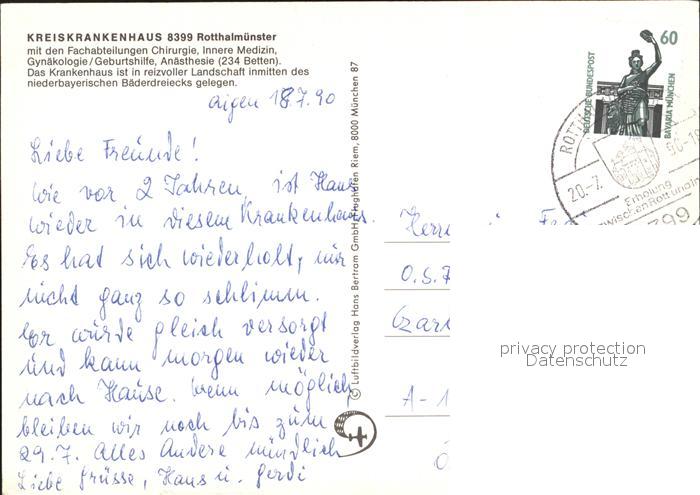 KREISKRANKENHAUS 8399 Rotthalmünster
mit den Fachabteilungen Chirurgie, Innere Medizin,
Gynäkologie/Geburtshilfe, Anästhesie (234 Betten).
Das Krankenhaus ist in reizvoller Landschaft inmitten des
niederbayerischen Bäderdreiecks gelegen.
Aigen 18.7.90
Liebe Freunde!
Wie vor 2 Jahren, ist Hans
wieder in diesem Krankenhaus.
Es hat sich wiederholt, nur
nicht ganz so schlimm.
Er würde gleich versorgt
und kann morgen wieder
nach Hause. Wenn möglich
bleiben wir noch bis zum
29.7. Alles Andere mündlich
Liebe Grüsse, Hans u. Gerdi
© Luftbildverlag Hans Bertram GmbH Flughafen Riem, 8000 München 87
60
DEUTSCHE BUNDESPOST
BAVARIA MÜNCHEN
ROTT
20.-7.
90-1
Erholung
zwischen Rott und Inn
8399
Herrn u. Frau
O.S.
A-1
Ö
privacy protection
Datenschutz